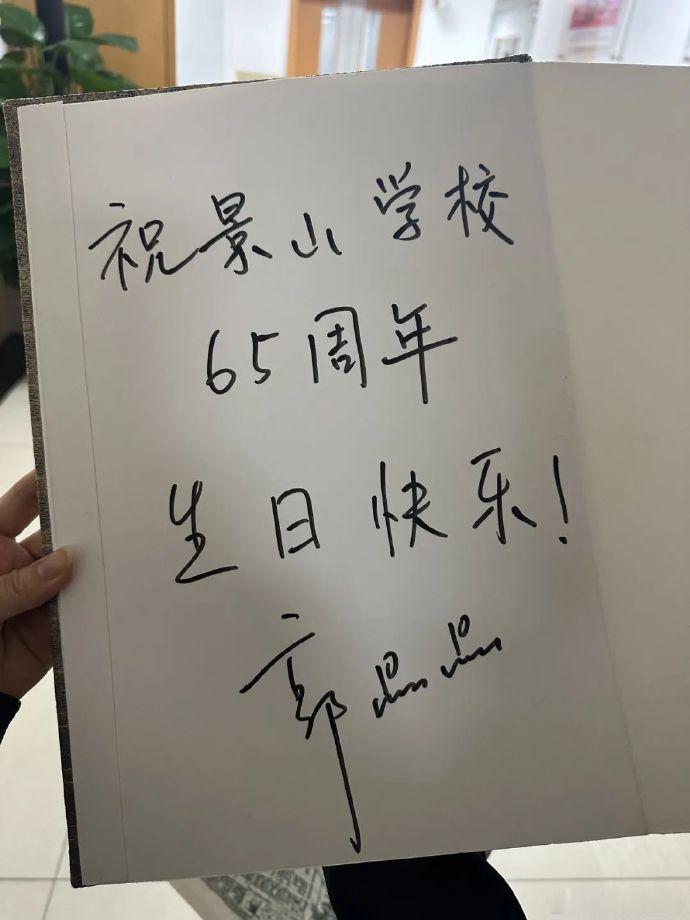 祝景山学校
65周年
生日快乐!
郭晶晶